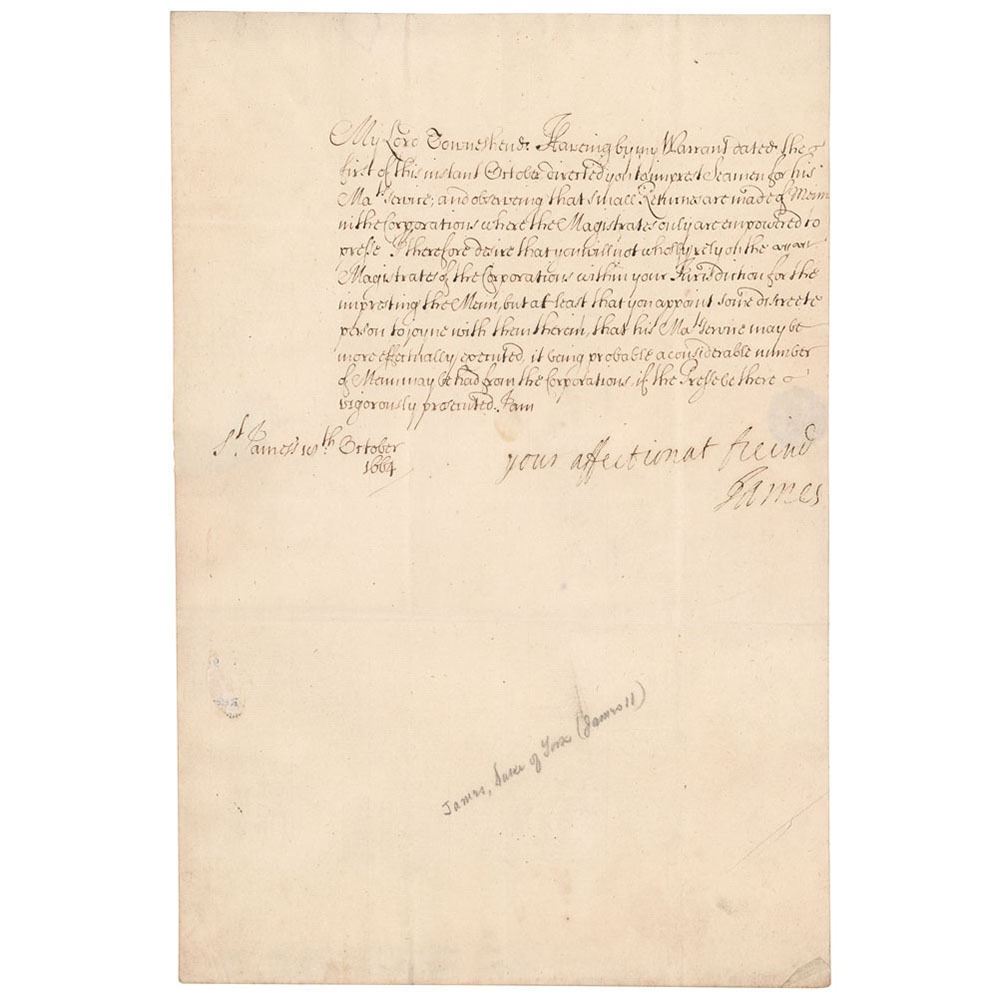 My Lord Towneshend. Haveing by my Warrant dated the
first of this instant October directed you to imprest Seamen for his
Ma.ts Service; and observeing that small Returnes are made of Menn
in the Corporations where the Magistrates only are empowered to
presse I therefore desire that you will not wholly rely on the
Magistrates of the Corporations within your Jurisdiction for the
impresting the Menn, but at least that you appoint some discreete
person to joyne with them therein, that his Ma.ts Service may be
more effectually executed, it being probable a considerable number
of Menn may be had from the Corporations, if the Presse be there
vigorously prosecuted. I am
your affectionat freind
James
St. James's th. October
1664
James, Duke of York (James II)